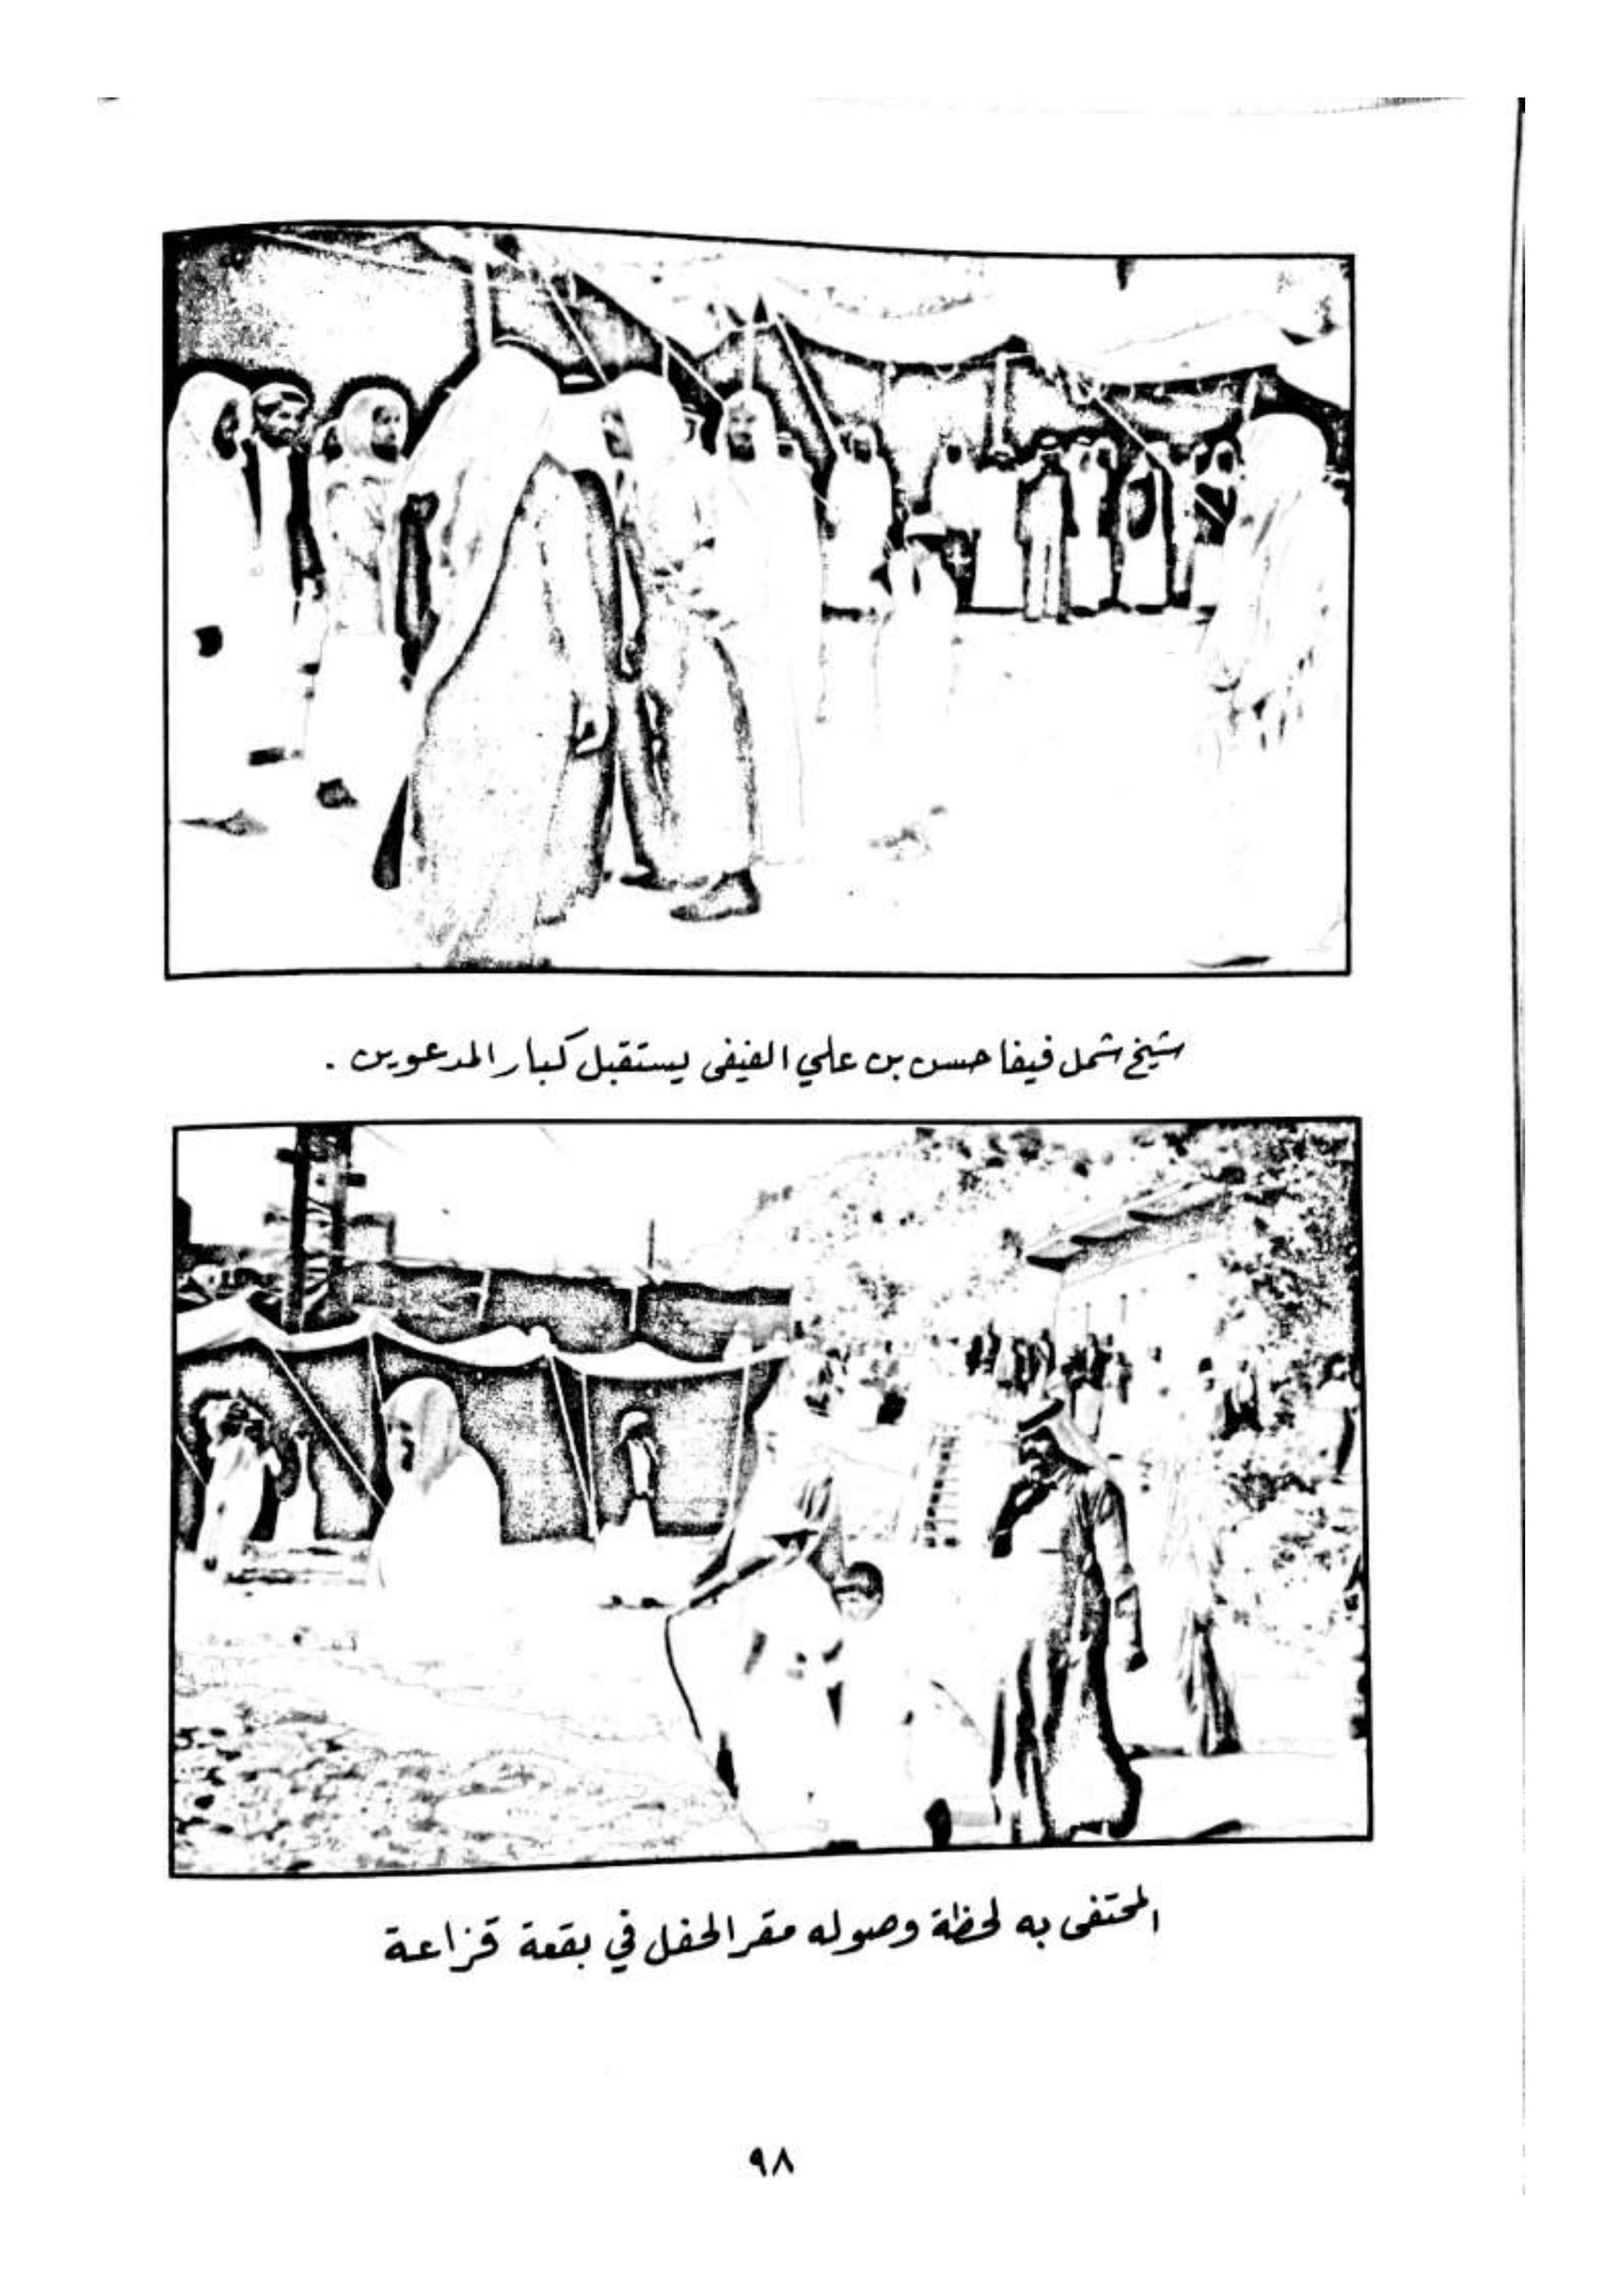 شيخ شمل فيفا حسن بن علي الفيفي يستقبل كبار المدعوين .
المحتفى به لحظة وصوله مقر الحفل في بقعة قزاعة
٩٨